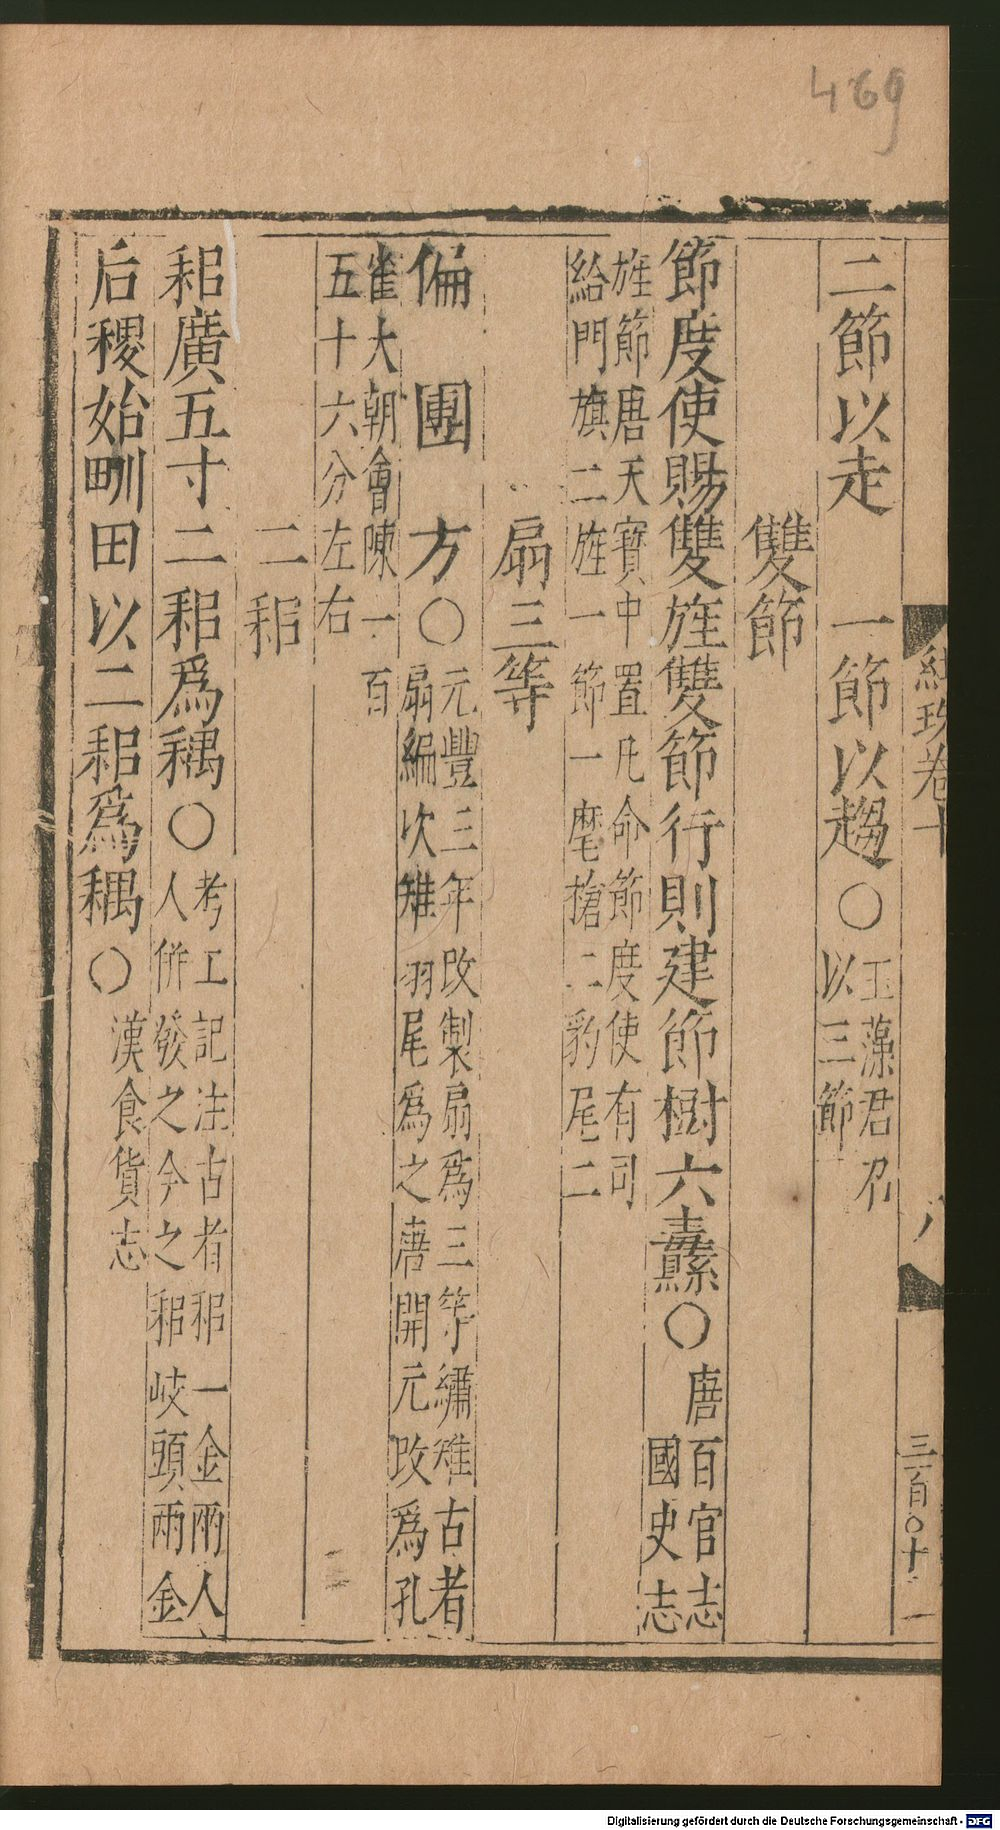 469
紺珠卷十
八
三百〇十一
二節以走 一節以趨〇玉藻君召
以三節
雙節
節度使賜雙旌雙節行則建節樹六纛〇唐百官志
國史志
旌節唐天寶中置凡命節度使有司
給門旗二旌一節一麾槍二豹尾二
扇三等
偏 團 方〇元豐三年改製扇爲三等繡雉古者
扇編次雉羽尾爲之唐開元改爲孔
雀大朝會陳一百
五十六分左右
二耜
耜廣五寸二耜爲耦〇考工記注古者耜一金兩人
人併發之今之耜岐頭兩金
后稷始甽田以二耜爲耦〇
漢食貨志
Digitalisierung gefördert durch die Deutsche Forschungsgemeinschaft - DFG